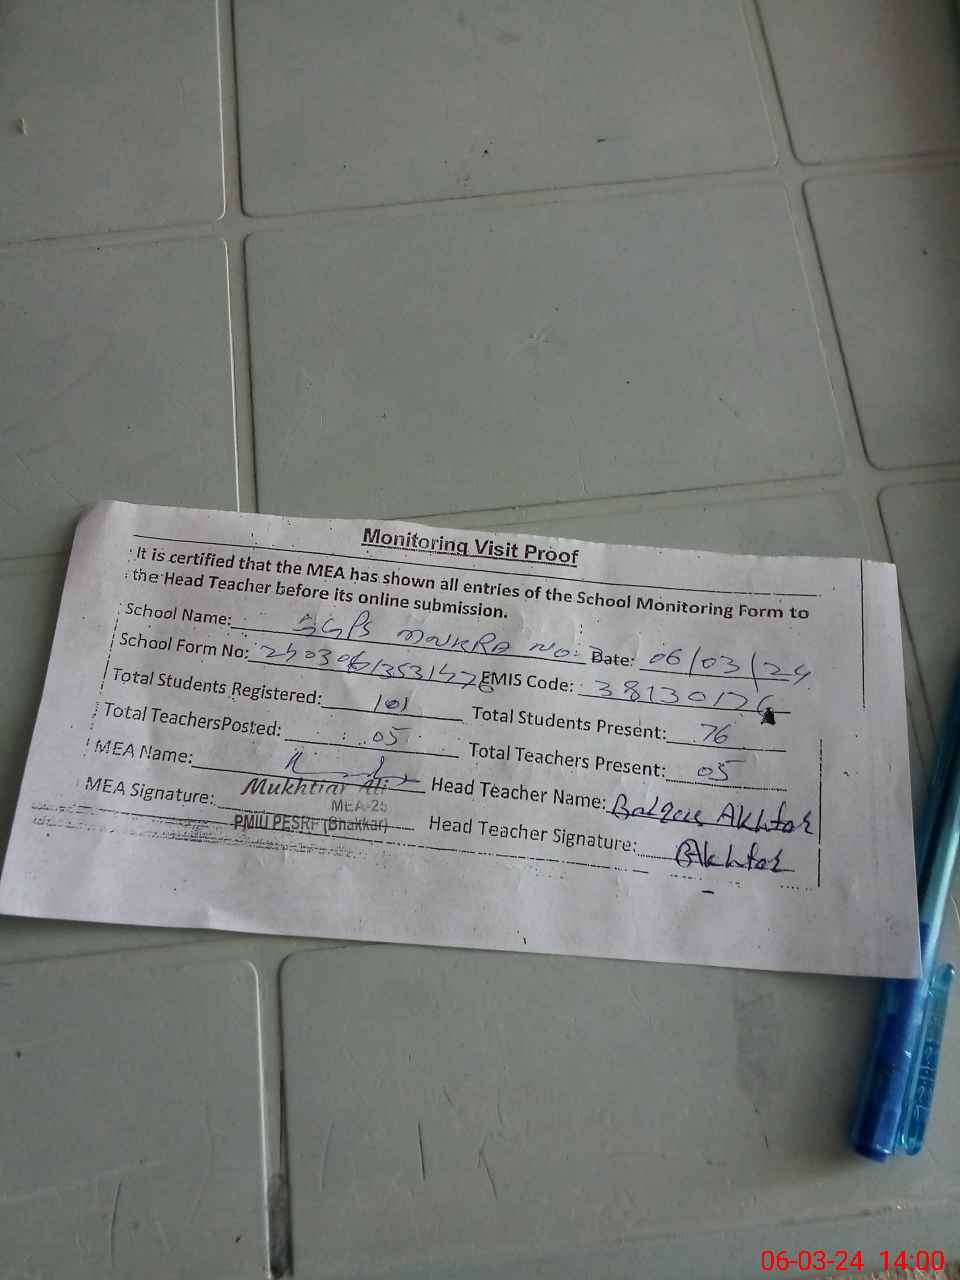 Monitoring Visit Proof
It is certified that the MEA has shown all entries of the School Monitoring Form to
the Head Teacher before its online submission.
School Name: GGPS No: 2 Date: 06/03/24
School Form No: EMIS Code: 38130176
Total Students Registered: 101 Total Students Present: 76
Total TeachersPosted: 05 Total Teachers Present: 05
MEA Name: Head Teacher Name: Akhtar
Mukhtiar Ali
MEA-25
MEA Signature: PMIU PESRP (Bhakkar) Head Teacher Signature: BAkhtar
06-03-24 14:00